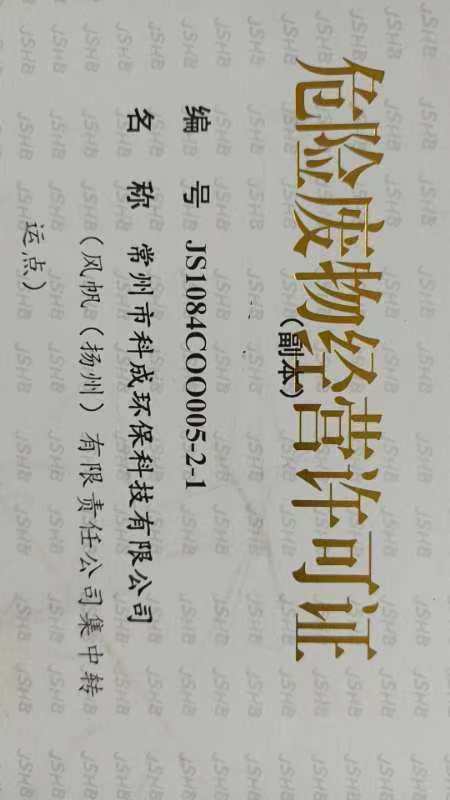 危险废物经营许可证
（副本）
编 号 JS1084COO005-2-1
名 称 常州市科成环保科技有限公司
（风帆（扬州）有限责任公司集中转
运点）